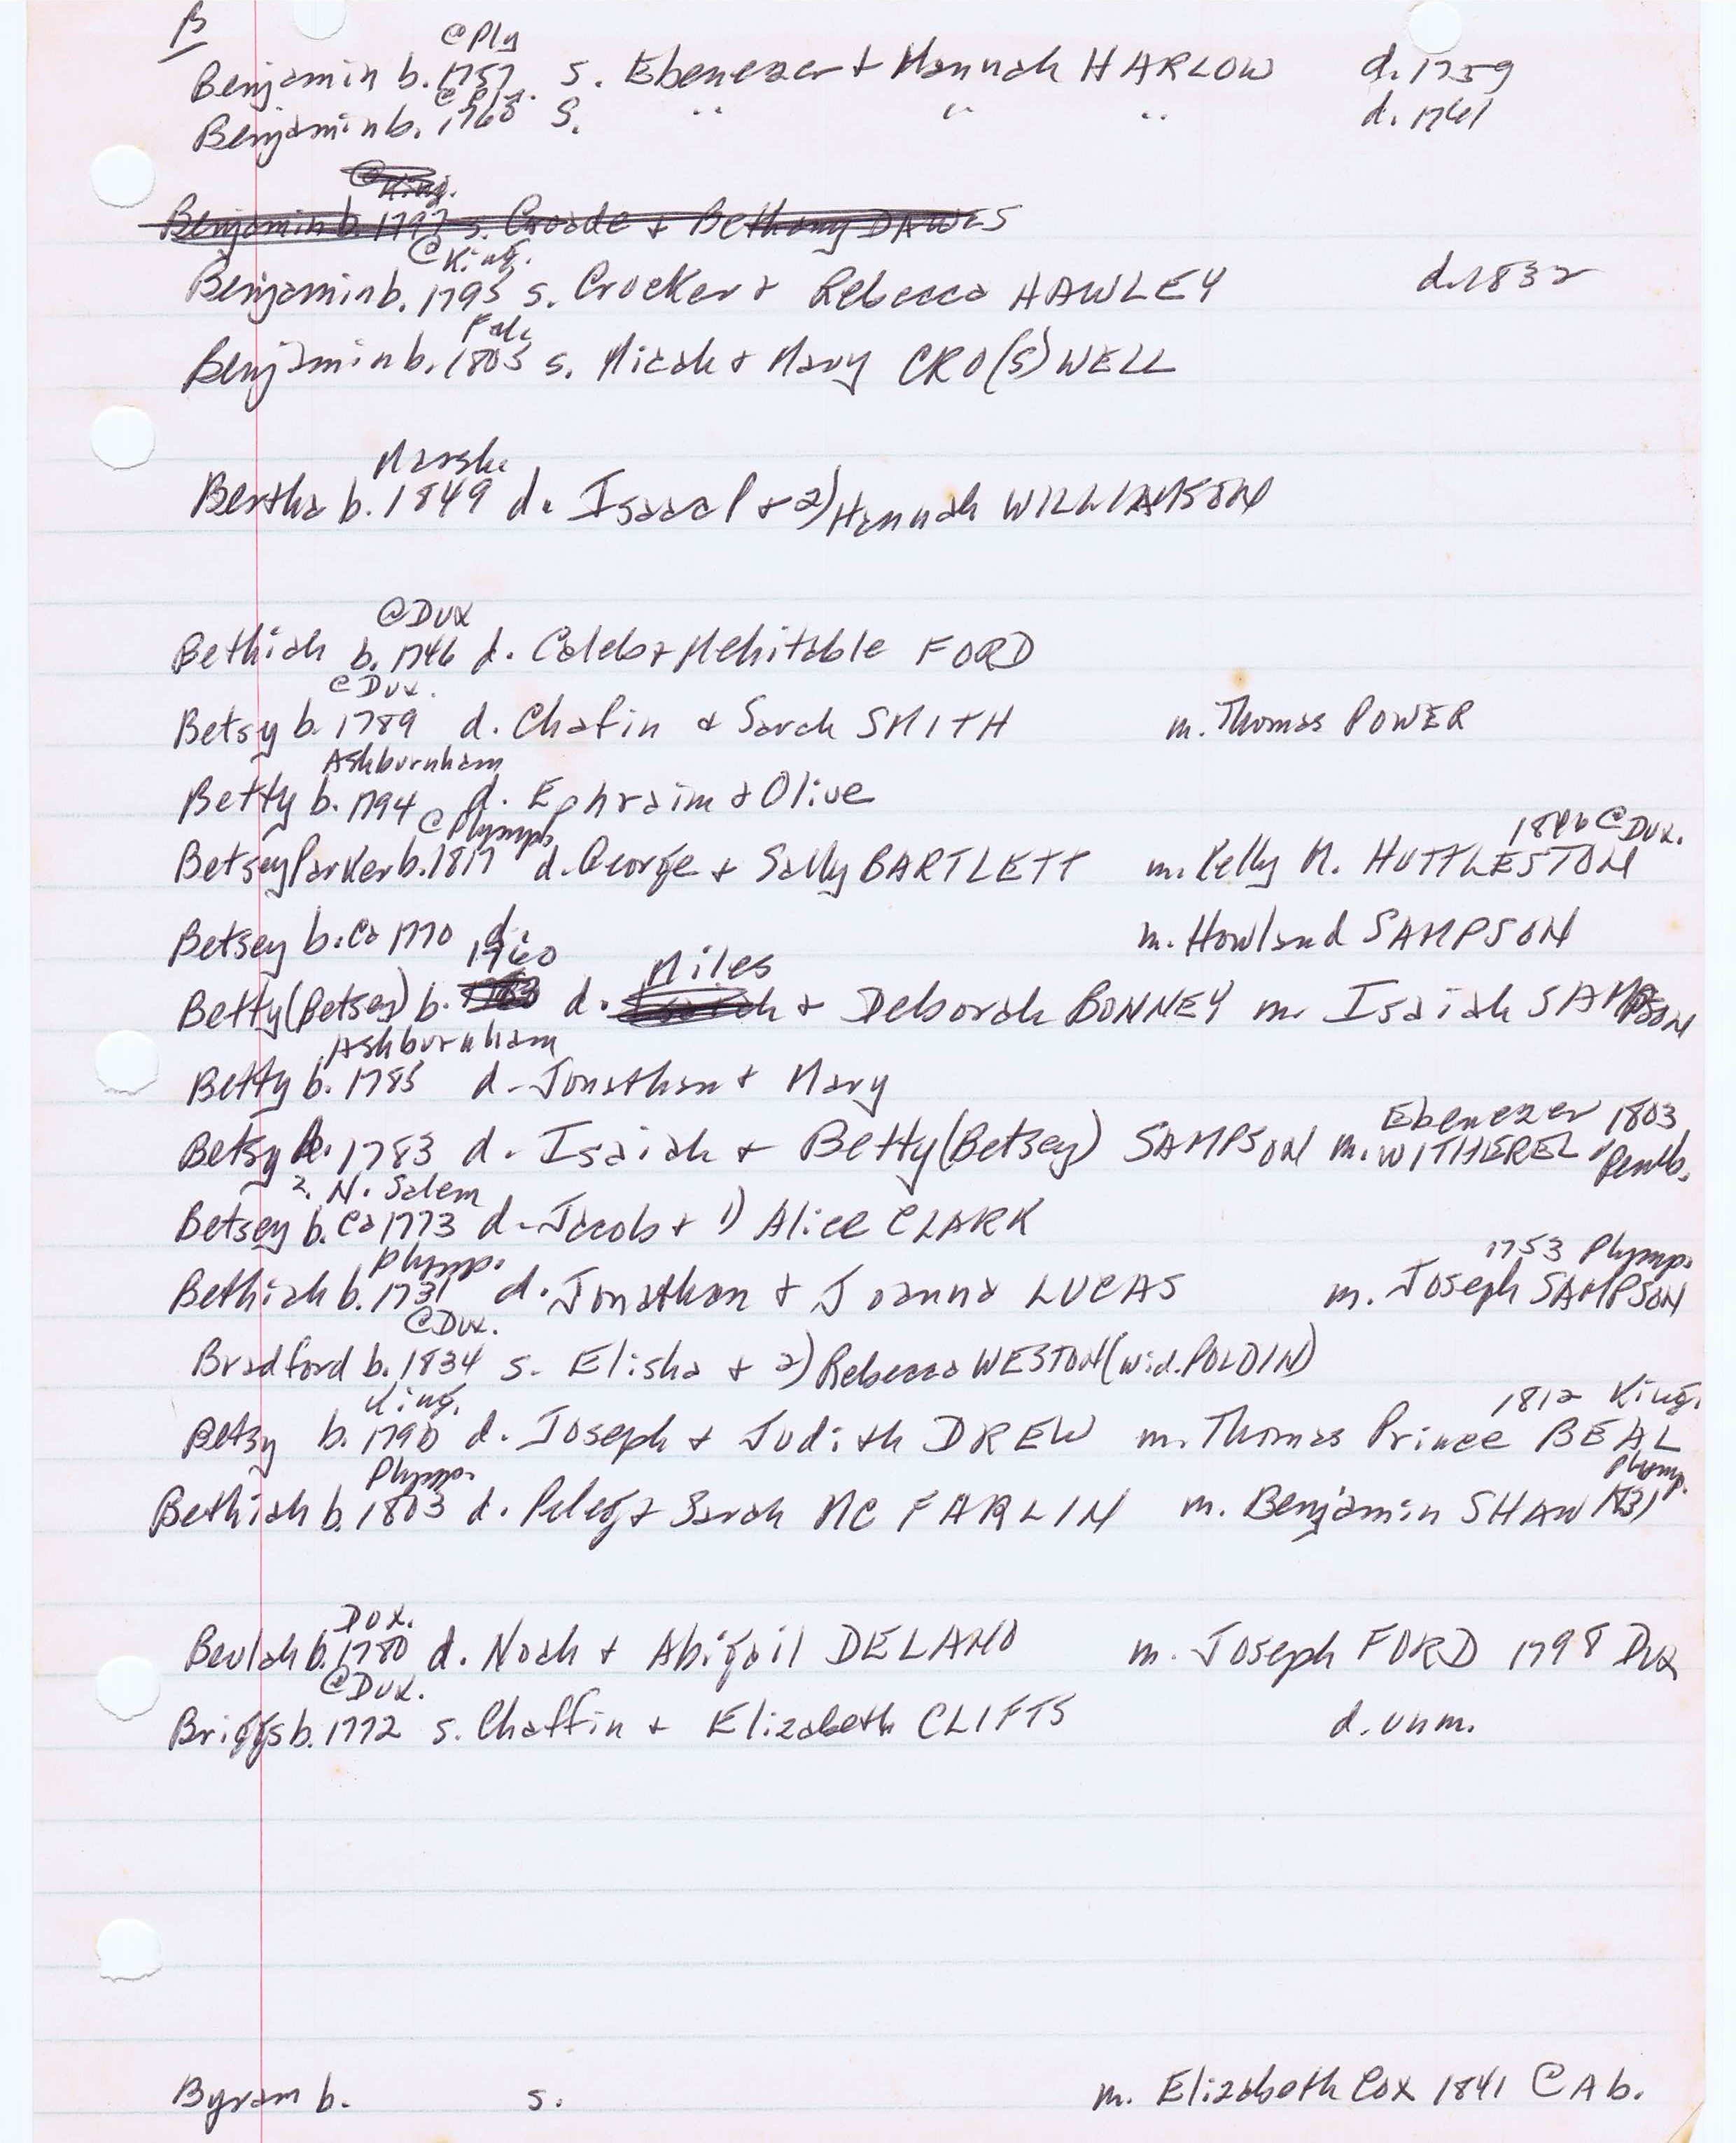 B
@Ply
Benjamin b. 1757 s. Ebenezer + Hannah HARLOW d. 1759
@Ply.
Benjamin b. 1760 S. " " " d. 1761
@King.
Benjamin b. 1797 s. Croade + Bethany DAWES
@King.
Benjamin b. 1795 s. Crocker + Rebecca HAWLEY d. 1832
Benjamin b. 1803 s. Micah + Mary CRO(S)WELL
Marsh.
Bertha b. 1849 d. Isaac + 2) Hannah WILLIAMSON
@DUX
Bethiah b. 1746 d. Caleb + Mehitable FORD
@Dux.
Betsy b. 1789 d. Chafin & Sarah SMITH m. Thomas POWER
Ashburnham
Betty b. 1794 d. Ephraim & Olive
@Plymp. 1846 @Dux.
Betsey Parker b. 1817 d. George + Sally BARTLETT m. Pelly M. HUTTLESTON
Betsey b. Ca 1770 d. m. Howland SAMPSON
1760 Miles
Betty (Betsey) b. 1763 d. + Deborah BONNEY m. Isaiah SAMPSON
Ashburnham
Betty b. 1785 d. Jonathan + Mary
Ebenezer 1803
Betsy b. 1783 d. Isaiah + Betty (Betsey) SAMPSON m. WITHEREL Pemb.
2. N. Salem
Betsey b. Ca 1773 d. Jacob + 1) Alice CLARK
Plymp. 1753 Plymp.
Bethiah b. 1731 d. Jonathan + Joanna LUCAS m. Joseph SAMPSON
@Dux.
Bradford b. 1834 s. Elisha + 2) Rebecca WESTON (wid. POLDIN)
King. 1812 King.
Betsy b. 1790 d. Joseph + Judith DREW m. Thomas Prince BEAL
Plymp. Plymp.
Bethiah b. 1803 d. Peleg + Sarah MC FARLIN m. Benjamin SHAW 1831
DUX.
Beulah b. 1780 d. Noah + Abigail DELANO m. Joseph FORD 1798 Dux
@Dux.
Briggs b. 1772 s. Chaffin + Elizabeth CLIFTS d. unm.
Byram b. s. m. Elizabeth Cox 1841 @ Ab.